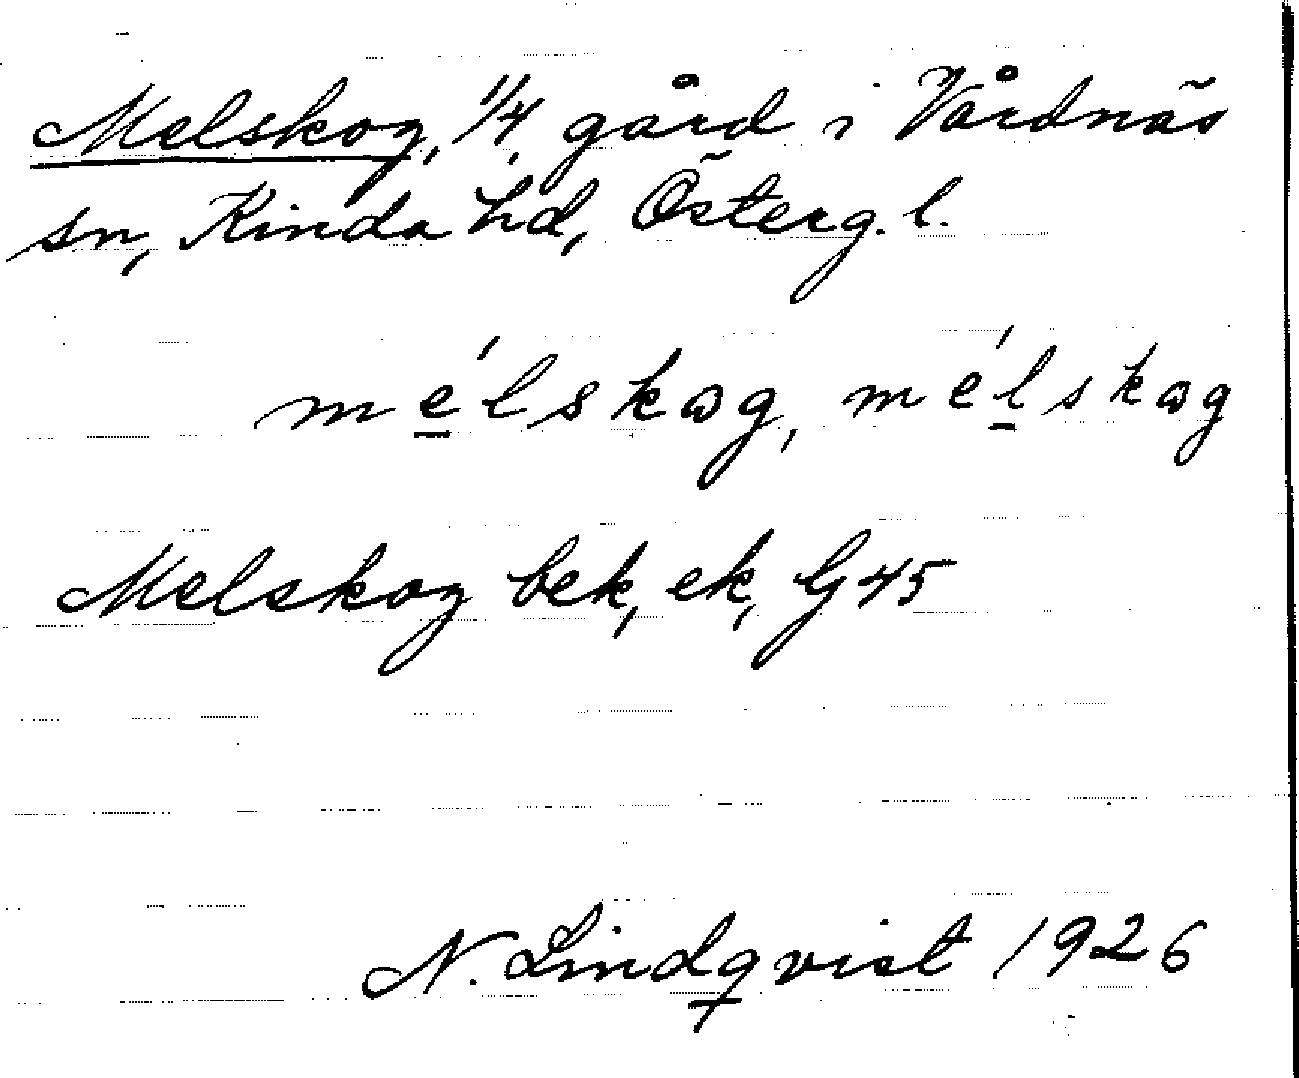 Melskog, 1/4 gård i Vårdnäs
sn, Kinda hd, Österg. l.
me̱ʹlskωg, meʹḻskωg
Melskog bek, ek, G 45
N. Lindqvist 1926